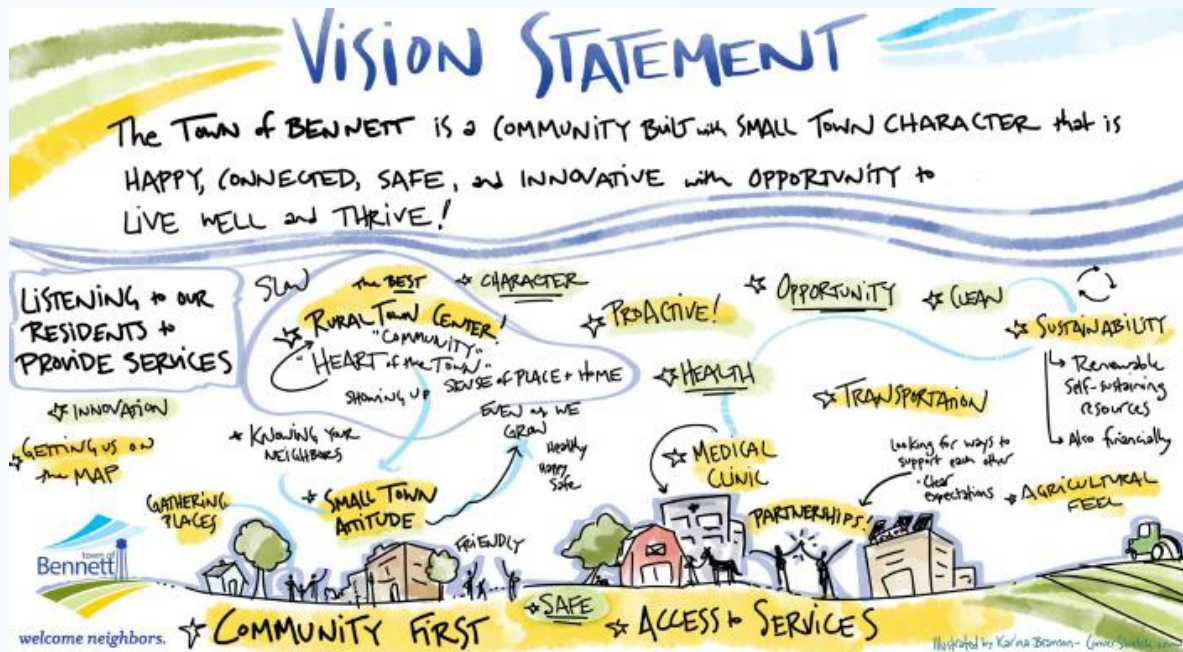 VISION STATEMENT
The TOWN of BENNETT is a COMMUNITY BUilT with SMALL TOWN CHARACTER that is
HAPPY, CONNECTED, SAFE, and INNOVATIVE with OPPORTUNITY to
LIVE WELL and THRIVE!
LISTENING to OUR
RESIDENTS to
PROVIDE SERVICES
SLOW
the BEST
RURAL TOWN CENTER!
"COMMUNITY"
"HEART of the TOWN"
SHOWING UP
SENSE of PLACE + HOME
CHARACTER
PROACTIVE!
OPPORTUNITY
CLEAN
SUSTAINABILITY
Renewable
Self-sustaining
resources
Also financially
INNOVATION
GETTING US ON
the MAP
KNOWING YOUR
NEIGHBORS
EVEN as WE
GROW
Healthy
Happy
Safe
HEALTH
TRANSPORTATION
MEDICAL
CLINIC
Looking for ways to
support each other
• Clear
expectations
AGRICULTURAL
FEEL
GATHERING
PLACES
SMALL TOWN
ATTITUDE
FRIENDLY
PARTNERSHIPS!
town of
Bennett
welcome neighbors.
COMMUNITY FIRST
SAFE
ACCESS to SERVICES
Illustrated by Karina Branson -